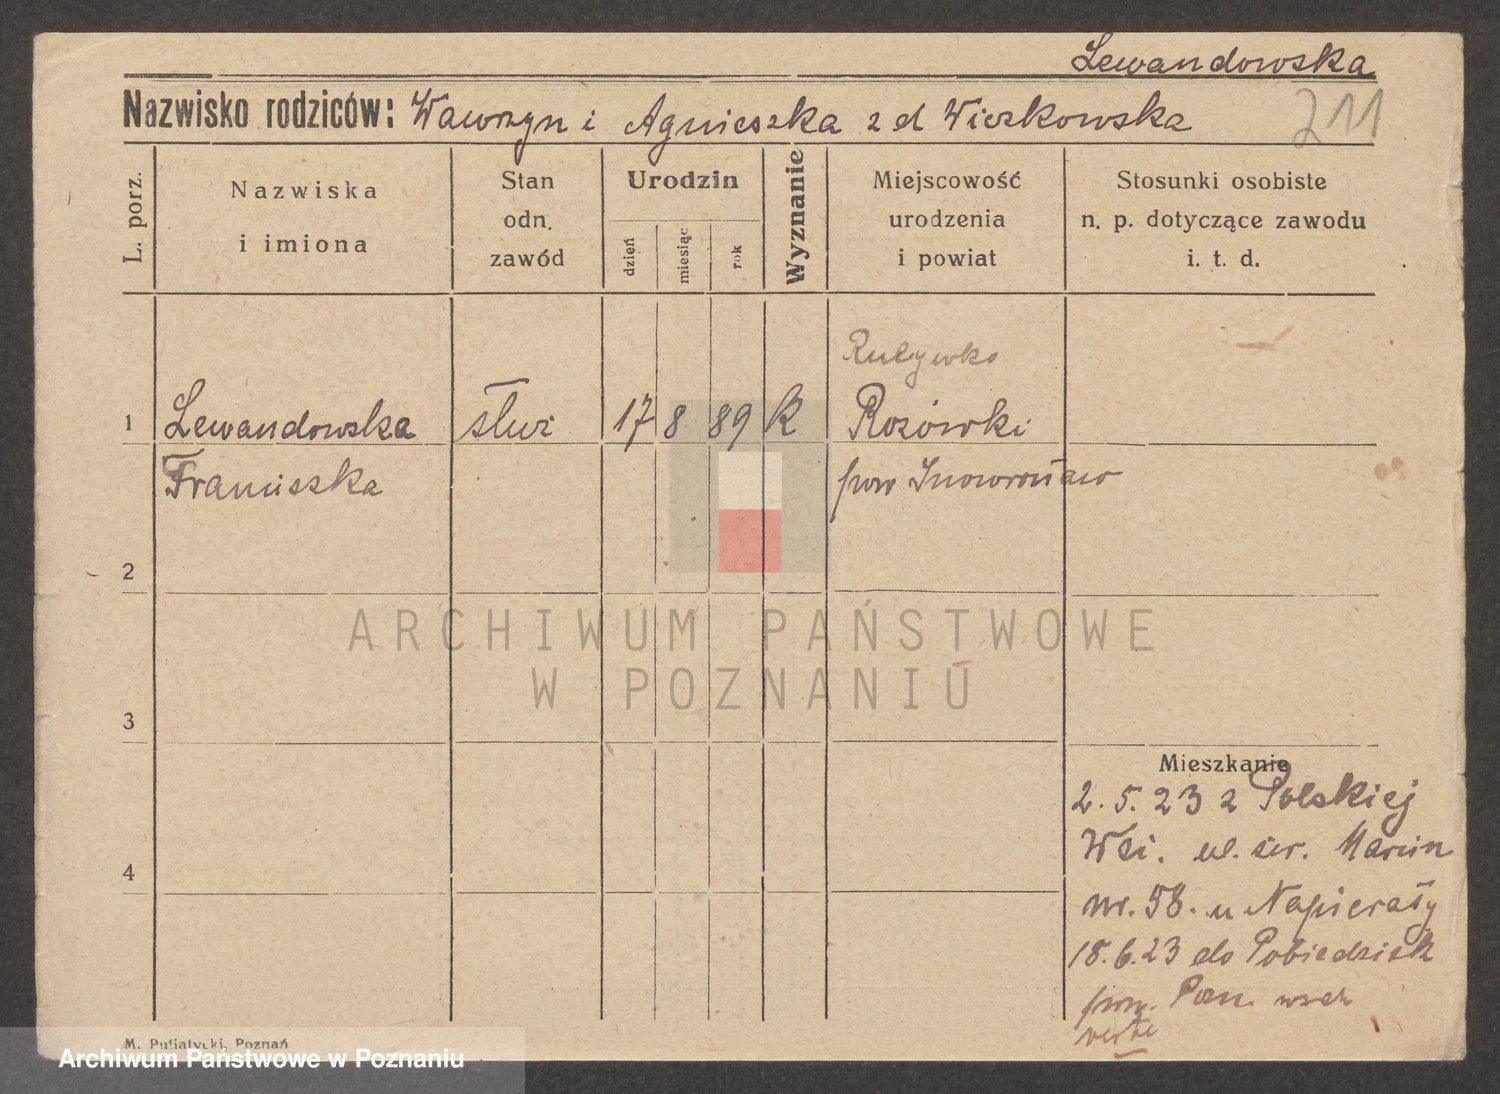 Lewandowska
Nazwisko rodziców: Wawrzyn i Agnieszka z d Wierkowska
211
L. porz.
Nazwiska
i imiona
Stan
odn.
zawód
Urodzin
dzień
miesiąc
rok
Wyznanie
Miejscowość
urodzenia
i powiat
Stosunki osobiste
n. p. dotyczące zawodu
i. t. d.
1
Lewandowska
służ
17
8
89
k
Rożówki
Franciszka
pow Inowrocław
2
3
4
ARCHIWUM PAŃSTWOWE
W POZNANIU
Mieszkanie
2. 5. 23 z Polskiej
Wsi. ul. św. Marcin
nr. 58. u Napierały
18.6.23 do Pobiedzisk
pow. Pozn. wsch
verte
M. Putiatycki, Poznań
Archiwum Państwowe w Poznaniu